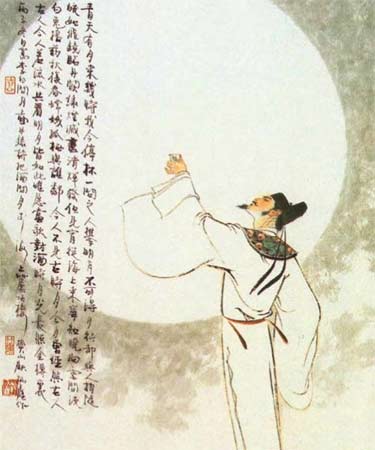 青天有月來幾時我今停杯一問之人攀明月不可得月行却與人相隨
皎如飛鏡臨丹闕綠煙滅盡清輝發但見宵從海上來寧知曉向雲間沒
白兔搗藥秋復春嫦娥孤栖與誰鄰今人不見古時月今月曾經照古人
古人今人若流水共看明月皆如此唯愿當歌對酒時月光長照金樽裏